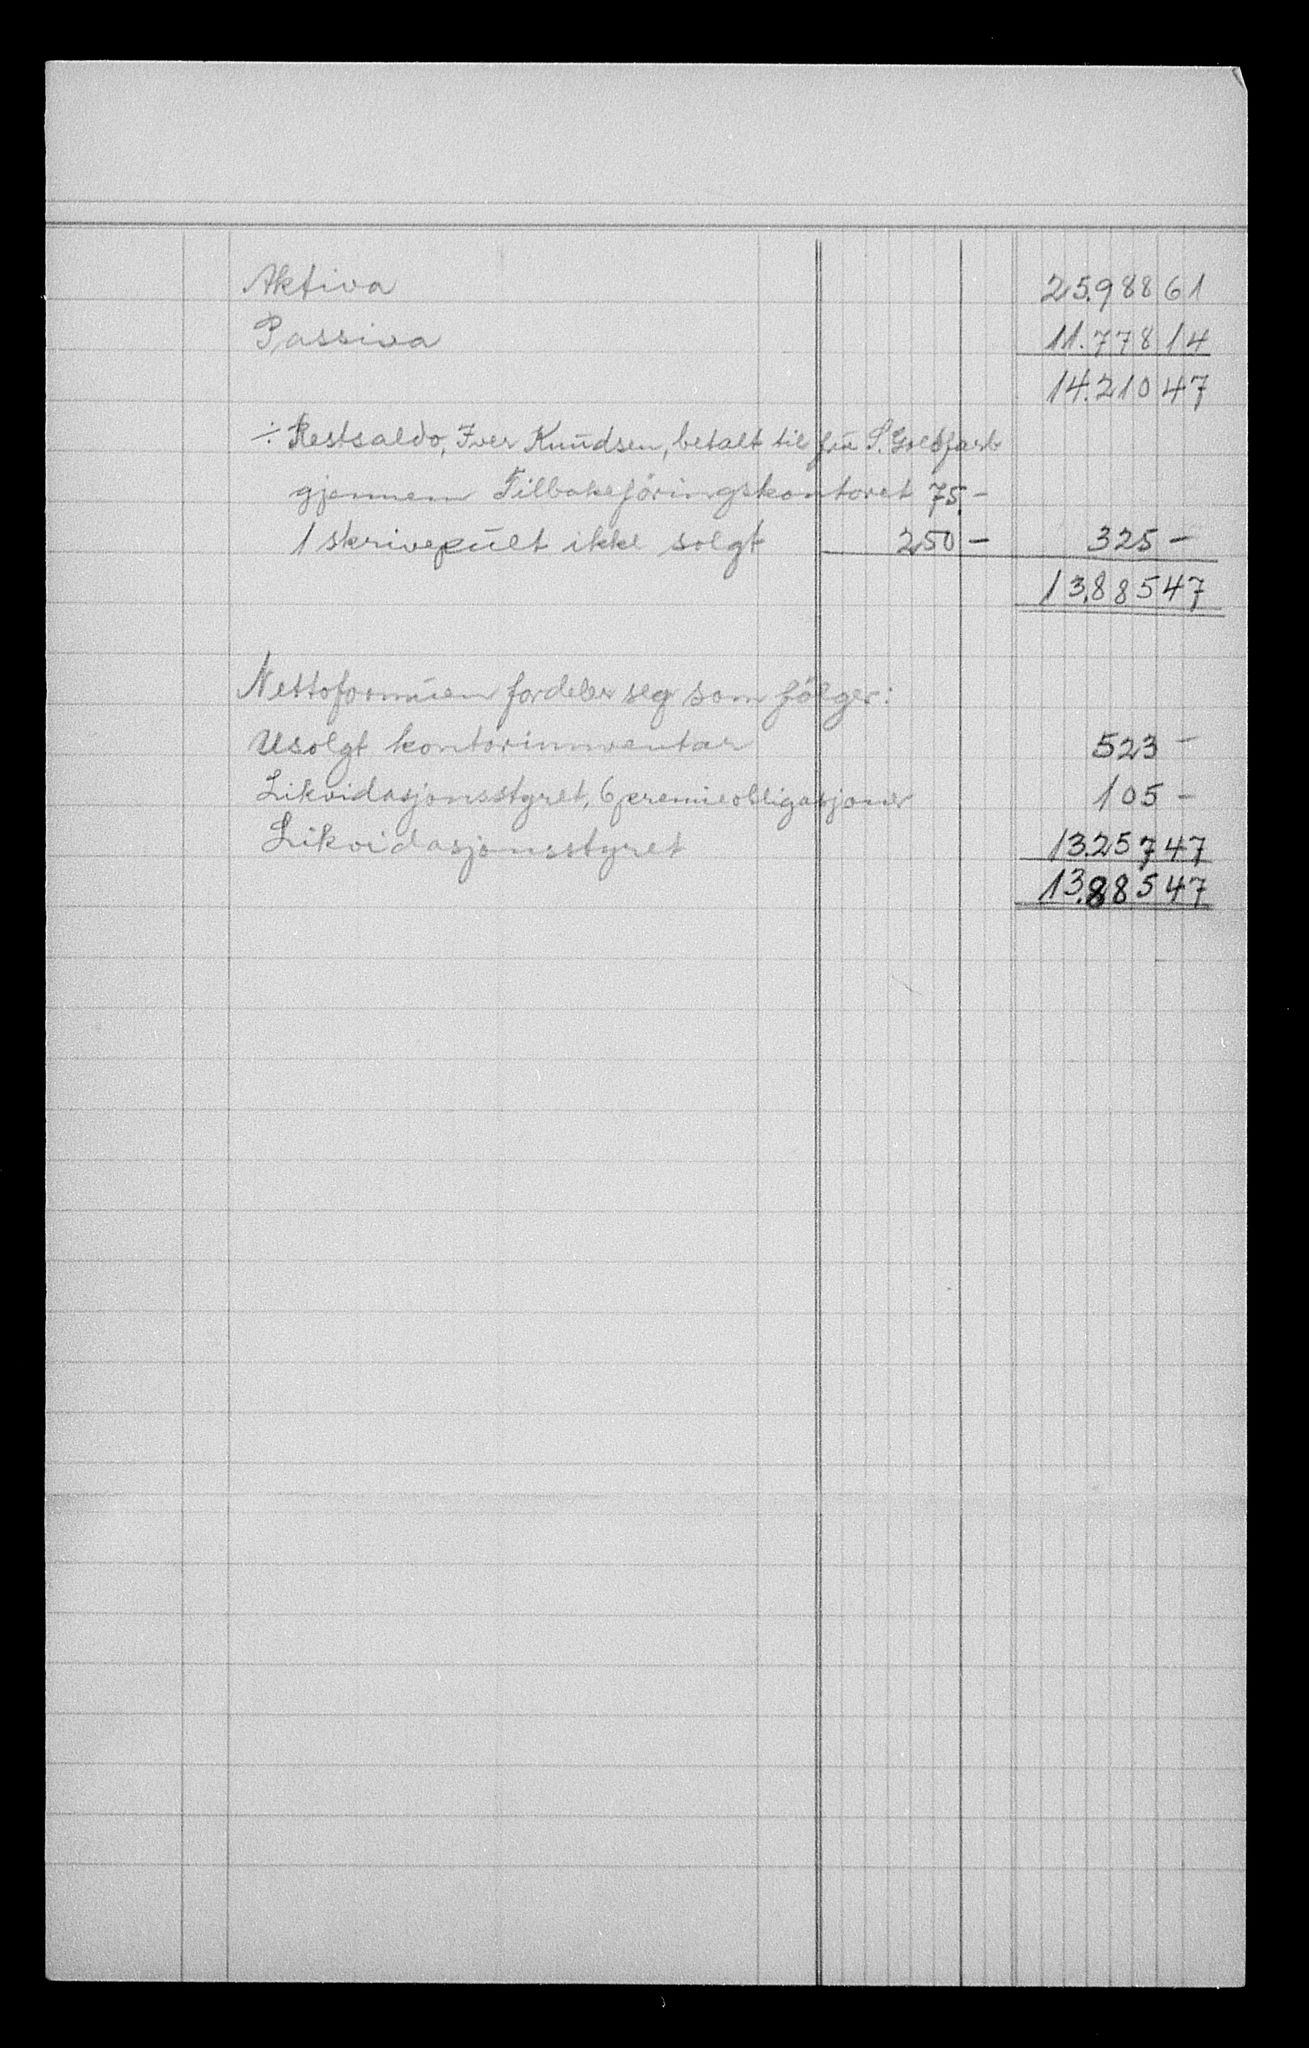 Aktiva 25.988 61
Passiva 11.778 14
14.210 47
÷ Restsaldo, Iver Knudsen, betalt til fru S. Goldfarb
gjennem Tilbakeföringskontoret 75.-
1 skrivepult ikke solgt 250 - 325 -
13.885 47
Nettoformuen fordeler seg som fölger:
Usolgt kontorinnventar 523 -
Likvidasjonsstyret, 6 premieobligasjoner 105 -
Likvidasjonsstyret 13.257 47
13.885 47